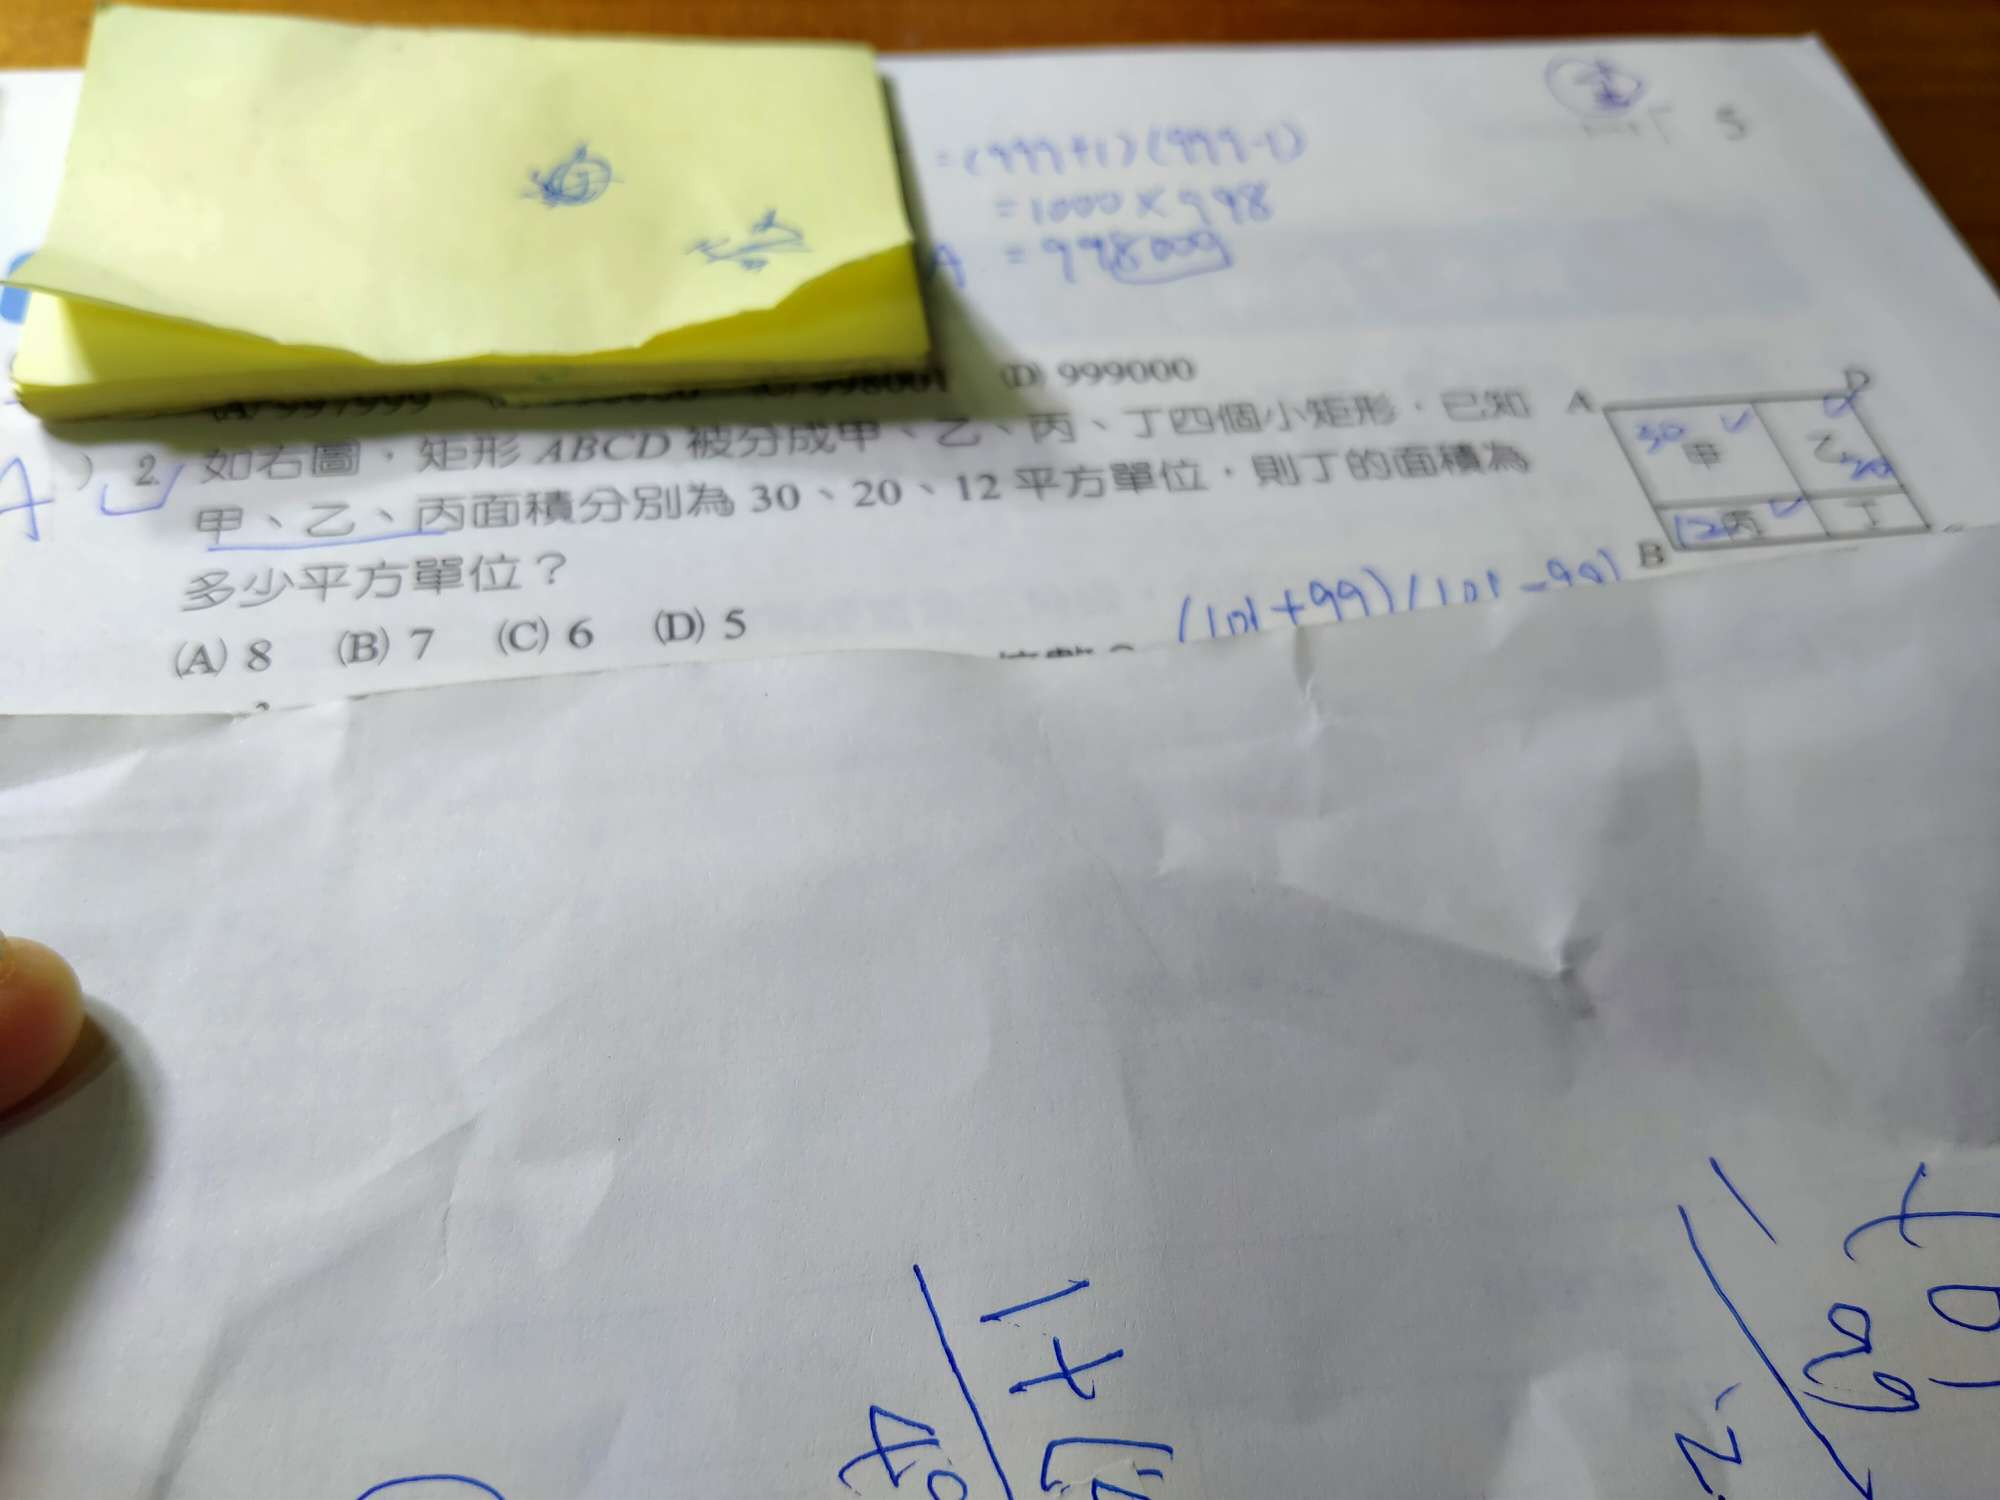 =(999+1)(999-1)
=1000×998
A =998000
(A) 997999 (D) 999000
A ) 2. 如右圖，矩形 ABCD 被分成甲、乙、丙、丁四個小矩形，已知
甲、乙、丙面積分別為 30、20、12 平方單位，則丁的面積為
多少平方單位？
(A) 8 (B) 7 (C) 6 (D) 5
A D
30 甲 乙 20
12 丙 丁
B
(101+99)(101-99)